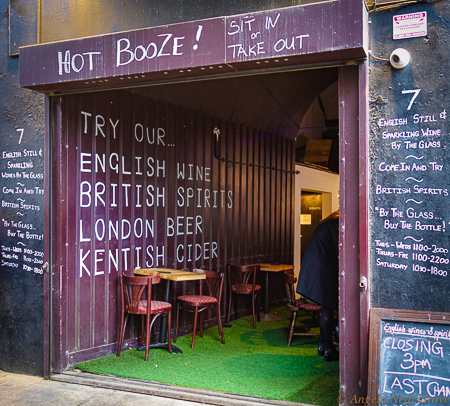 HOT BOOZE!
SIT IN
OR
TAKE OUT
WARNING
TRY OUR...
ENGLISH WINE
BRITISH SPIRITS
LONDON BEER
KENTISH CIDER
7
ENGLISH STILL &
SPARKLING
WINES BY THE GLASS
~
COME IN AND TRY
~
BRITISH SPIRITS
~
"BY THE GLASS
BUY THE BOTTLE!
TUES - WEDS 1100-2000
THURS-FRI 1100-2200
SATURDAY 1030-1800
7
ENGLISH STILL &
SPARKLING WINE
BY THE GLASS
~
COME IN AND TRY
~
BRITISH SPIRITS
~
"BY THE GLASS...
BUY THE BOTTLE!"
TUES - WEDS 1100-2000
THURS-FRI 1100-2200
SATURDAY 1030-1800
English wines & spirit
CLOSING
3PM
LAST CHAN
© Angela Nega Grove